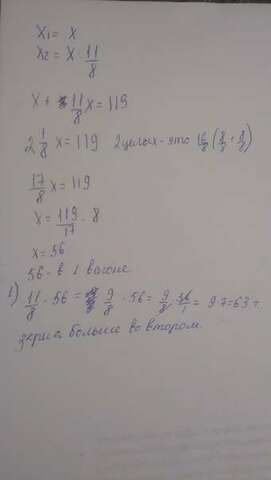 x₁ = x
x₂ = x · 11/8
x + 11/8 x = 119
2 1/8 x = 119 2 целых - это 16/8 (8/8 + 8/8)
17/8 x = 119
x = 119/17 · 8
x = 56
56 - в 1 вагоне
11/8 · 56 = 9/8 · 56 = 9/8 · 56/1 = 9·7=63 т
зерна больше во втором.